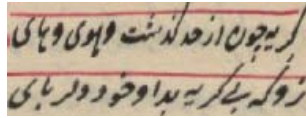 گریه چون از حد گذشت و هوی و های
زو که بی گریه بد او خود دلربای